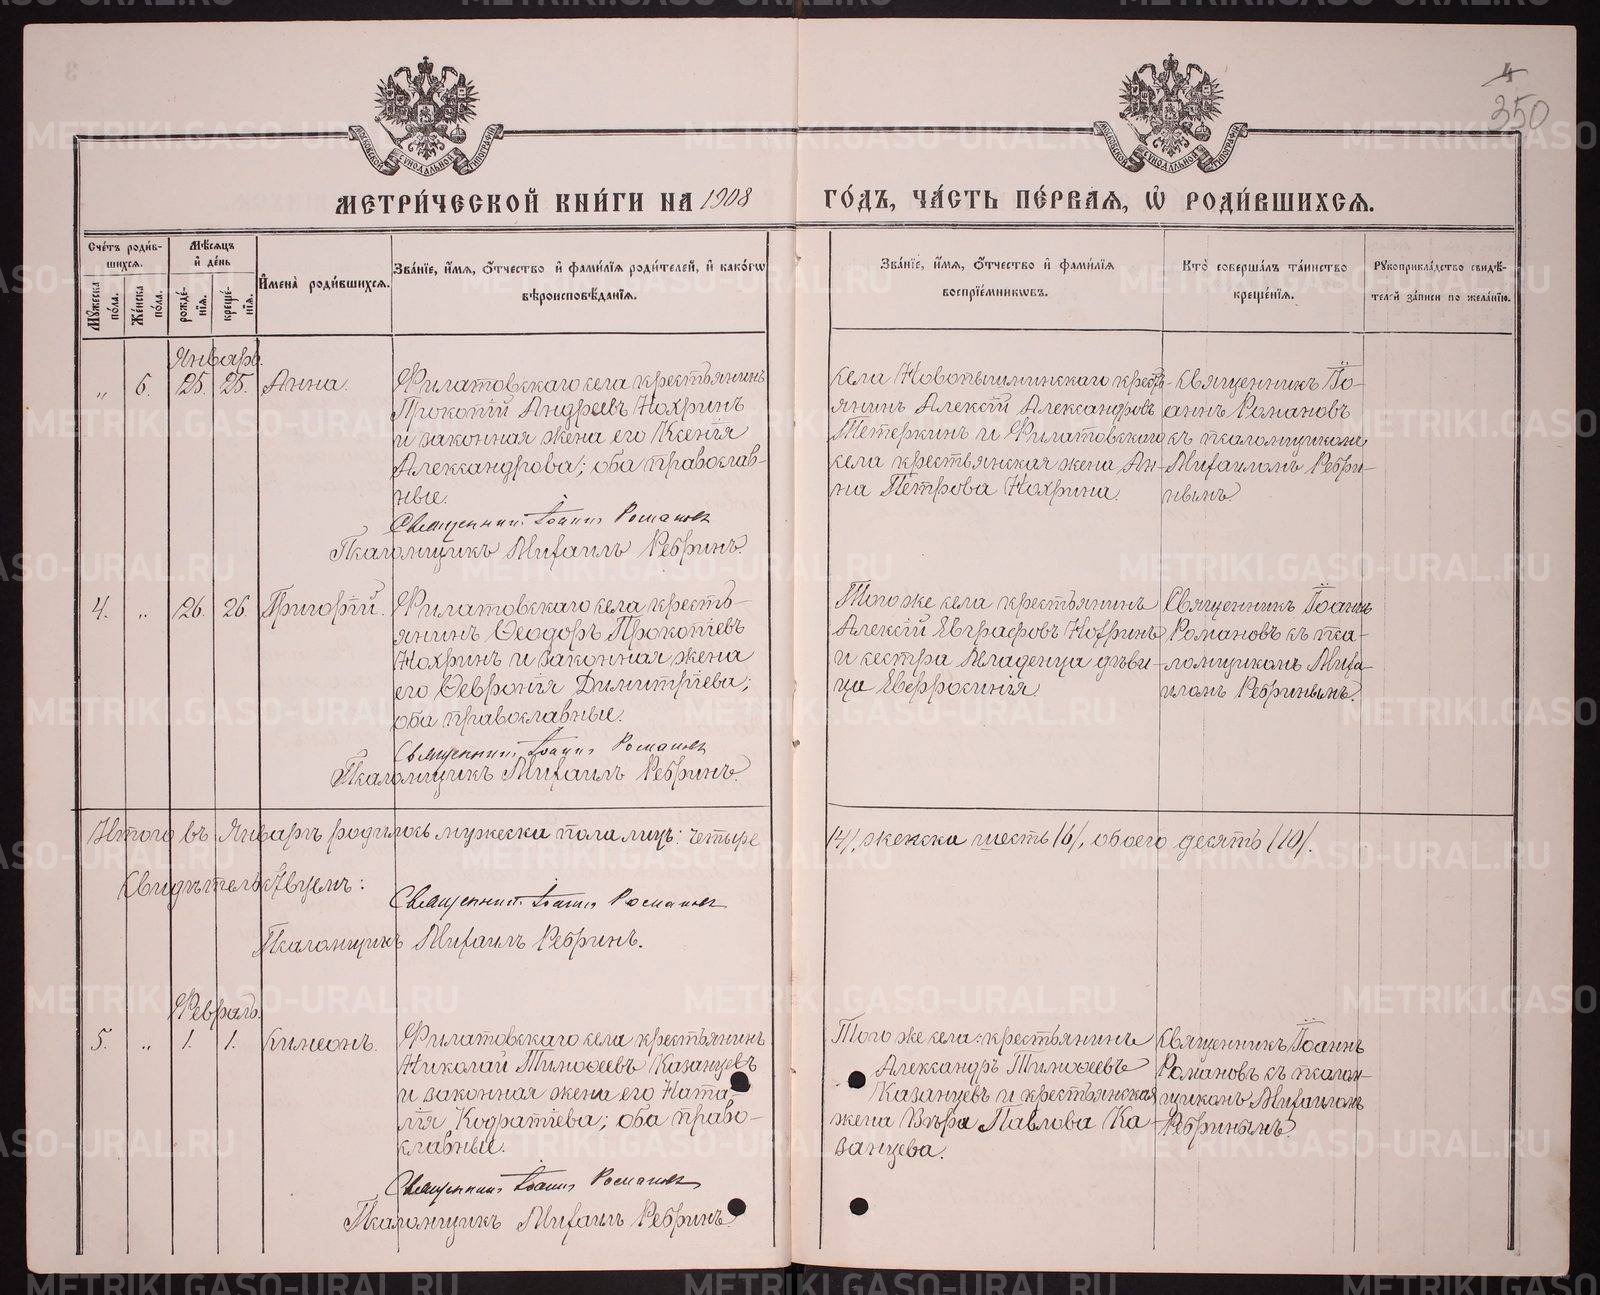 4
350
МЕТРИ́ЧЕСКОЙ КНИ́ГИ НА 1908 ГО́ДЪ, ЧА́СТЬ ПЕ́РВАЯ, Ѡ РОДИ́ВШИХСЯ.
Сче́тъ роди́в-
шихся.
Мѣ́сяцъ
и҆ де́нь
Мꙋ́жеска
по́ла.
Же́нска
по́ла.
рожде́-
нїя.
креще́-
нїя.
И҆мена̀ роди́вшихся.
Зва́нїе, и҆́мя, ѻ҆́тчество и҆ фами́лїя роди́телей, и҆ како́гѡ
вѣроисповѣ́данїя.
Зва́нїе, и҆́мя, ѻ҆́тчество и҆ фами́лїя
воспрїе́мникѡвъ.
Кто̀ соверша́лъ та́инство
креще́нїя.
Рꙋкоприкла́дство свидѣ́-
телей за́писи по жела́нїю.
Январь.
„ 6. 25. 25. Анна.
Филатовскаго села крестьянинъ
Прокопій Андреевъ Нохринъ
и законная жена его Ксенія
Александрова; оба православ-
ные.
Священникъ Іоаннъ Романовъ
Псаломщикъ Михаилъ Ребринъ.
села Новопышминскаго кресть-
янинъ Алексій Александровъ
Тетеркинъ и Филатовскаго
села крестьянская жена Ан-
на Петрова Нохрина.
Священникъ Іо-
аннъ Романовъ
съ псаломщикомъ
Михаиломъ Ребри-
нымъ
4. „ 26. 26. Григорій.
Филатовскаго села кресть-
янинъ Ѳеодоръ Прокопіевъ
Нохринъ и законная жена
его Ѳевронія Димитріева;
оба православные.
Священникъ Іоаннъ Романовъ
Псаломщикъ Михаилъ Ребринъ.
Того же села крестьянинъ
Алексій Евграфовъ Нохринъ
и сестра младенца дѣви-
ца Евфросинія
Священникъ Іоаннъ
Романовъ съ пса-
ломщикомъ Миха-
иломъ Ребринымъ.
Итого въ Январѣ родилось мужеска пола лицъ: четыре /4/, женска шесть /6/, обоего десять /10/.
Свидѣтельствуемъ:
Священникъ Іоаннъ Романовъ
Псаломщикъ Михаилъ Ребринъ.
Февраль.
5. „ 1. 1. Симеонъ.
Филатовскаго села крестьянинъ
Николай Тимоѳеевъ Казанцевъ
и законная жена его Ната-
лія Кодратіева; оба право-
славные.
Священникъ Іоаннъ Романовъ
Псаломщикъ Михаилъ Ребринъ.
Того же села: крестьянинъ
Александръ Тимоѳеевъ
Казанцевъ и крестьянская
жена Вѣра Павлова Ка-
занцева.
Священникъ Іоаннъ
Романовъ съ псалом-
щикомъ Михаиломъ
Ребринымъ.
METRIKI.GASO-URAL.RU